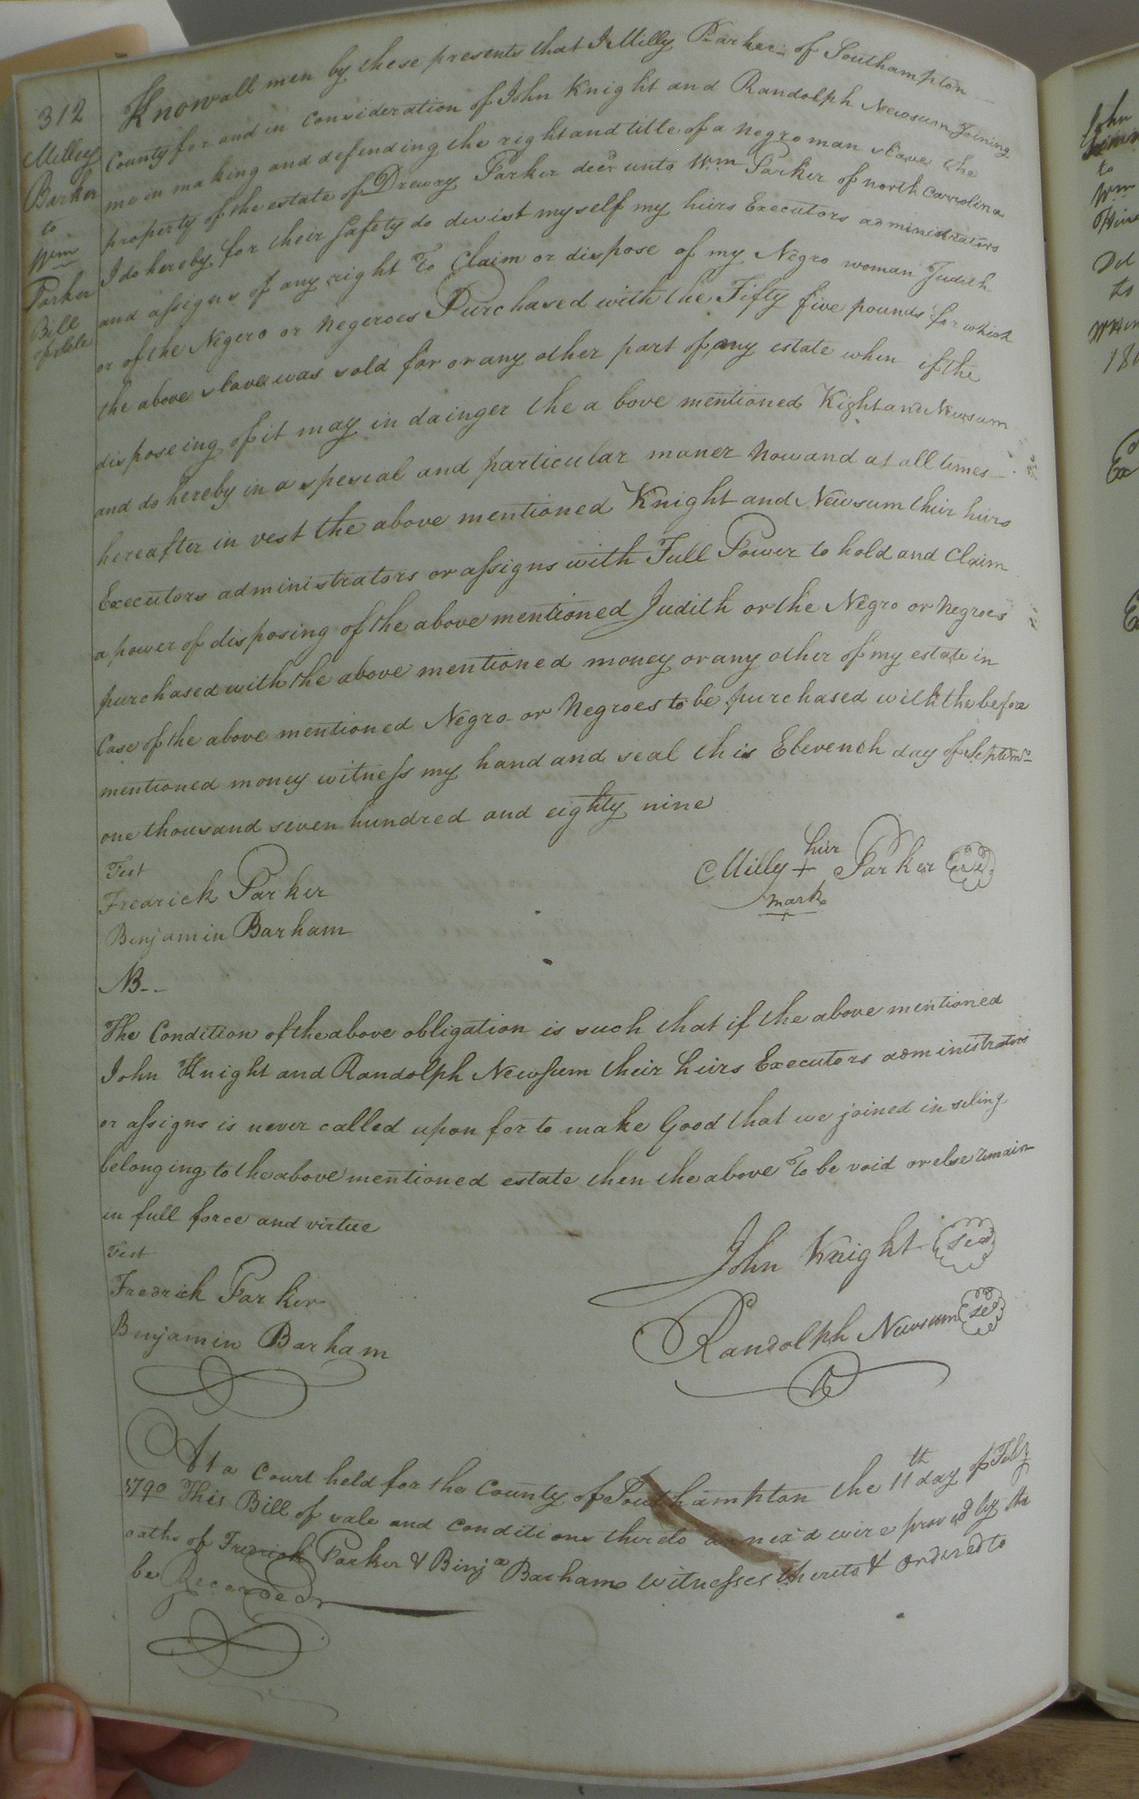 312
Milley
Parker
to
Wm
Parker
Bill
of Sale
Know all men by these presents that I Milly Parker of Southampton
County for and in consideration of John Knight and Randolph Newsum Joining
me in making and defending the right and title of a negro man slave the
property of the estate of Drewry Parker decd unto Wm Parker of north Carrolina
I do hereby for their safety do devist myself my heirs Executors administrators
and assigns of any right To Claim or dispose of my Negro woman Judith
or of the Negro or Negeroes Purchased with the Fifty five pounds for which
the above slave was sold for or any other part of my estate when if the
disposeing of it may in dainger the a bove mentioned Kight and Newsum
and do hereby in a spesial and particular maner Now and at all times
hereafter in vest the above mentioned Knight and Newsum their heirs
Executors administrators or assigns with Full Power to hold and Claim
a power of disposing of the above mentioned Judith or the Negro or Negroes
purchased with the above mentioned money or any other of my estate in
Case of the above mentioned Negro or Negroes to be purchased with the before
mentioned money witness my hand and seal this Eleventh day of Septemr
one thousand seven hundred and eighty nine
Test
Fredrick Parker
Benjamin Barham
her
Milly + Parker seal
mark
NB--
The Condition of the above obligation is such that if the above mentioned
John Knight and Randolph Newsum their heirs Executors administrators
or assigns is never called upon for to make Good that we joined in seling
belonging to the above mentioned estate then the above To be void or else remain
in full force and virtue
Test
Fredrick Parker
Benjamin Barham
John Knight seal
Randolph Newsum seal
At a Court held for the County of Southampton the 11th day of Feby
1790 This Bill of sale and conditions thereto annex'd were proved by the
oaths of Fredrick Parker & Benja Barham witnesses thereto & ordered to
be Recorded
John
to
Wm